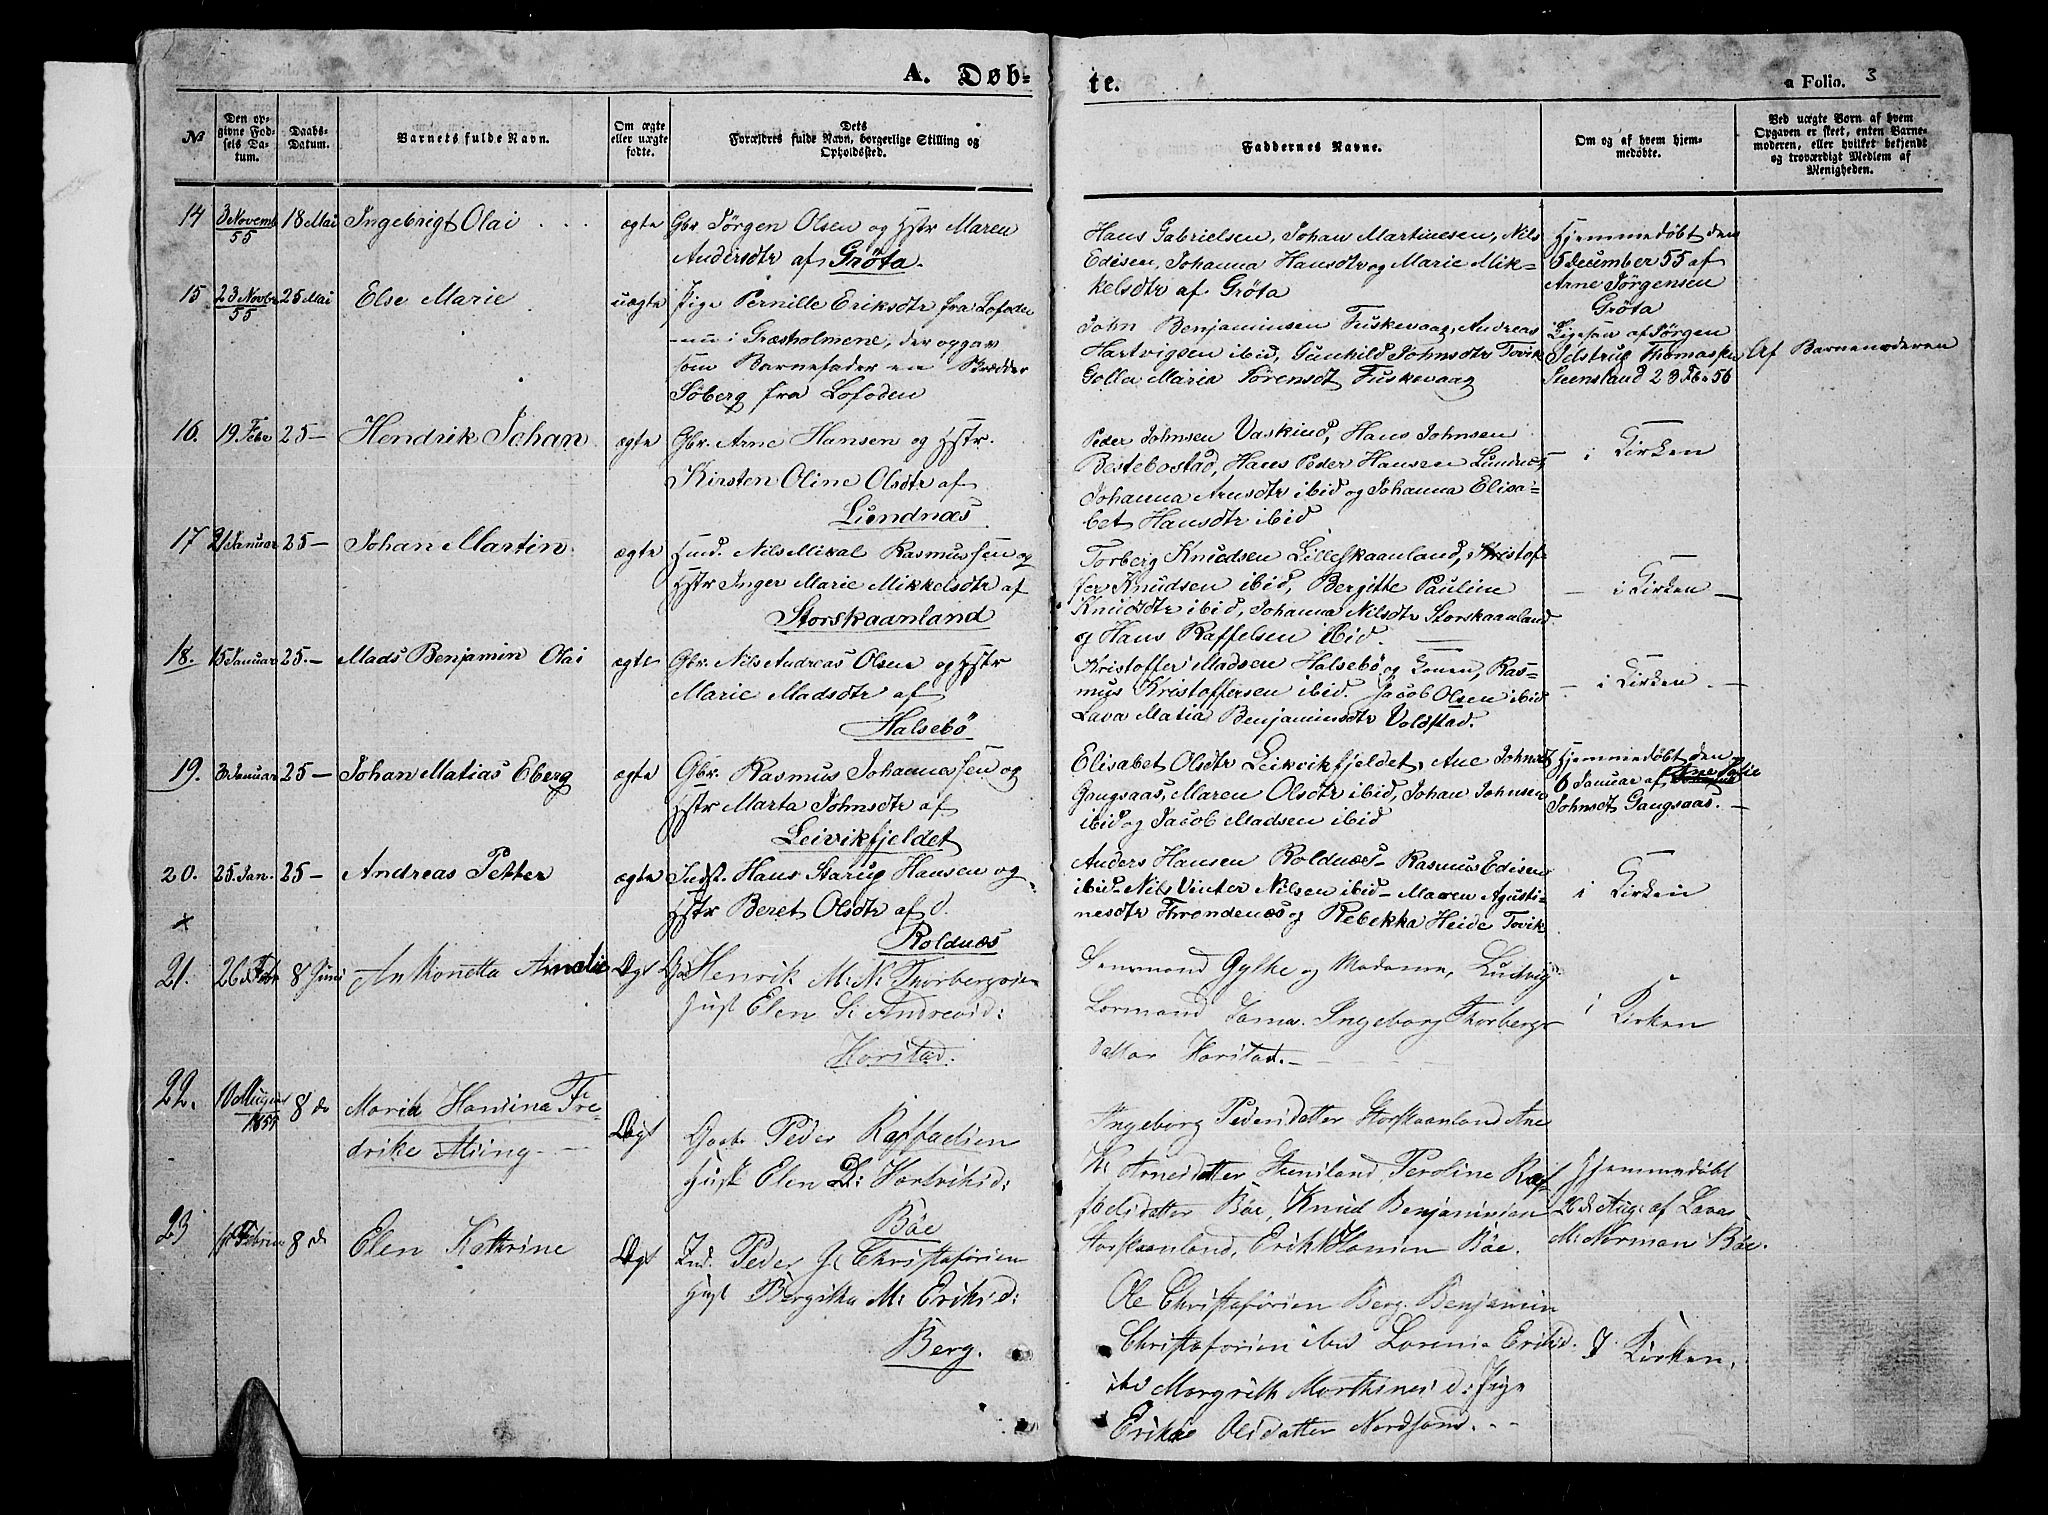 A. Døb-
te.
a Folio. 3
№
Den op-
givne Fød-
sels Da-
tum.
Daabs-
Datum.
Barnets fulde Navn.
Om ægte
eller uægte
fødte.
Dets
Forældres fulde Navn, borgerlige Stilling og
Opholdssted.
Faddernes Navne.
Om og af hvem hjem-
medøbte.
Ved uægte Børn af hvem
Opgaven er skeet, enten Barne-
moderen, eller hvilket bekjendt
og troværdigt Medlem af
Menigheden.
14
3 Novemb
55
18 Mai
Ingebrigt Olai
ægte
Gbr. Jørgen Olsen og Hstr Maren
Andersdtr af Gröta.
Hans Gabrielsen, Johan Martinesen, Nils
Edisen, Johanna Hansdtr og Marie Mik-
kelsdtr af Gröta
Hjemmedøbt den
5 december 55 af
Arne Jörgensen
Gröta
15
23 Novbr
55
25 Mai
Else Marie
uægte
Pige Pernille Eriksdtr fra Lofoden
nu i Græsholmene, der opgav
som Barnefader en Skrædder
Söberg fra Lofoden
John Benjaminsen Fuskevaag, Andreas
Hartvigsen ibid, Gunhild Johnsdtr Tovik
Golla Maria Sörensdt Fuskevaag
Ligesaa af Jörgen
Jelstrup Thomassen
Steensland 23 Fbr 56
Af Barnemoderen
16.
19. Febr
25 —
Hendrik Johan
ægte
Gbr. Arne Hansen og Hstr.
Kirsten Oline Olsdtr af
Lundnæs
Peder Johnsen Vaskind, Hans Johnsen
Bestebostad, Hans Peder Hansen Lundnæs,
Johanna Arnsdtr ibid og Johanna Elisa-
bet Hansdtr ibid
i Kirken
17
21 Januar
25 —
Johan Martin
ægte
Hmd. Nils Mikal Rasmussen og
Hstr Inger Marie Mikkelsdtr af
Storskaanland
Torberg Knudsen Lilleskaanland, Kristof-
fer Knudsen ibid, Bergitte Pauline
Knudsdtr ibid, Johanna Nilsdtr Storskaanland
og Hans Raffelsen ibid.
— i Kirken —
18.
15 Januar
25. —
Mads Benjamin Olai
ægte
Gbr. Nils Andreas Olsen og Hstr
Marie Madsdtr af
Halsebö
Kristoffer Madsen Halsebö og Konen, Ras-
mus Kristoffersen ibid. Jacob Olsen ibid
Lava Matia Benjaminsdtr Voldstad.
— i Kirken. —
19.
3 Januar
25 —
Johan Matias Eberg
ægte
Gbr. Rasmus Johannessen og
Hstr Marta Johnsdtr af
Leivikfjeldet
Elisabet Olsdtr Leivikfjeldet, Ane Johnsdt
Gangsaas, Maren Olsdtr ibid, Johan Johnsen
ibid og Jacob Madsen ibid
Hjemmedøbt den
6 Januar af Ane Sofie
Johnsdt Gangsaas. —
20.
25. Jan.
25 —
Andreas Petter
ægte
Indst. Hans Starup Hansen og
Hstr Beret Olsdtr af
Roldnæs
Anders Hansen Roldnæs — Rasmus Edisen
ibid — Nils Vinter Nilsen ibid — Maren Agusti-
nesdtr Throndenæs og Rebekka Heide Tovik
i Kirken
x
21.
26 Febr
8 Juni
Antonetta Amalie
Ægt
Gbr Henrik M. N. Thorbergsen
Hust Elen S. Andreasd:
Horstad.
Lensmand Gylke og Madame, Ludvig
Normand Sama. Ingeborg Thorbergs-
datter Harstad. —
i Kirken
22.
10 August
1855
8 do
Maria Hansina Fre-
drike Alsing —
Ægt
Gaab. Peder Raffaelsen
Hust Elen D: Hartviksd:
Böe
Ingeborg Pedersdatter Storskaanland Ane
K: Arnesdatter Steensland, Peroline Raf-
faelsdatter Böe, Knud Benjaminsen
Storskaanland, Erik Hansen Böe.
Hjemmedöbt
26 de Aug: af Lava
M: Norman Böe.
23
8 d
Elen Kathrine
Ægt
Ind. Peder G Christoforsen
Hust Bergitha M: Eriksd:
Berg.
Ole Christoforsen Berg. Benjamin
Christoforsen ibid Lorense Eriksd.
ibd Margrith Marthinesd: Pige
Erikke Olsdatter Nordsand. —
I Kirken.